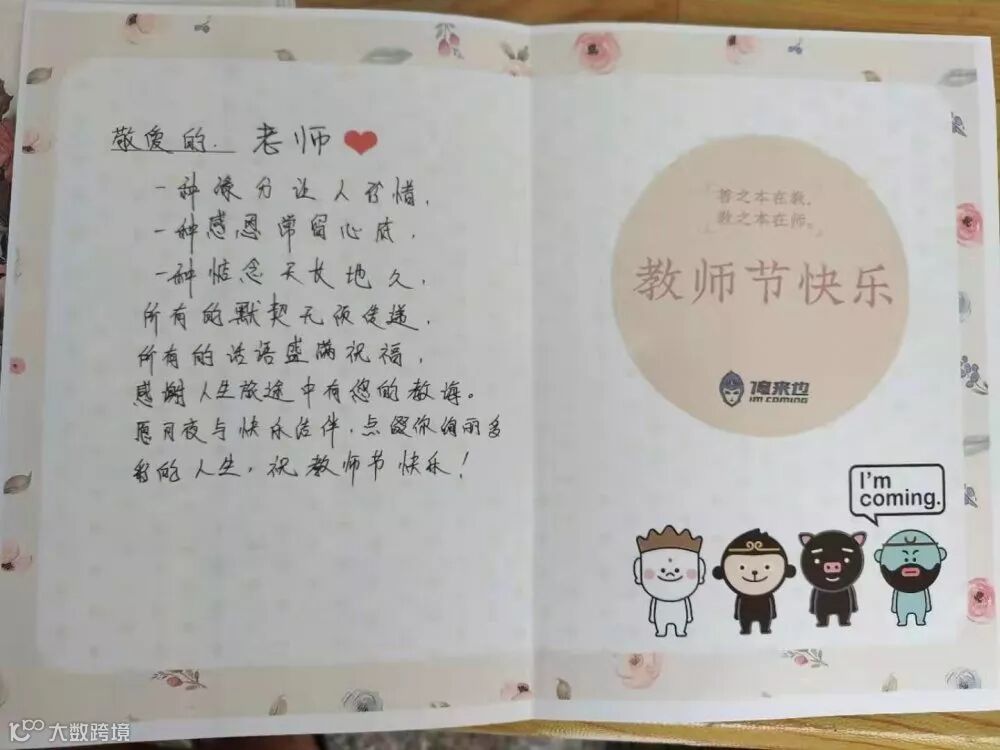 敬爱的. 老师
一种缘分让人珍惜,
一种感恩常留心底,
一种惦念天长地久,
所有的默契无须传递,
所有的话语盛满祝福,
感谢人生旅途中有您的教诲。
愿日夜与快乐结伴,点缀你绚丽多
彩的人生,祝教师节快乐!
善之本在教,
教之本在师。
教师节快乐
俺来也
IM COMING
I'm
coming.
大数跨境